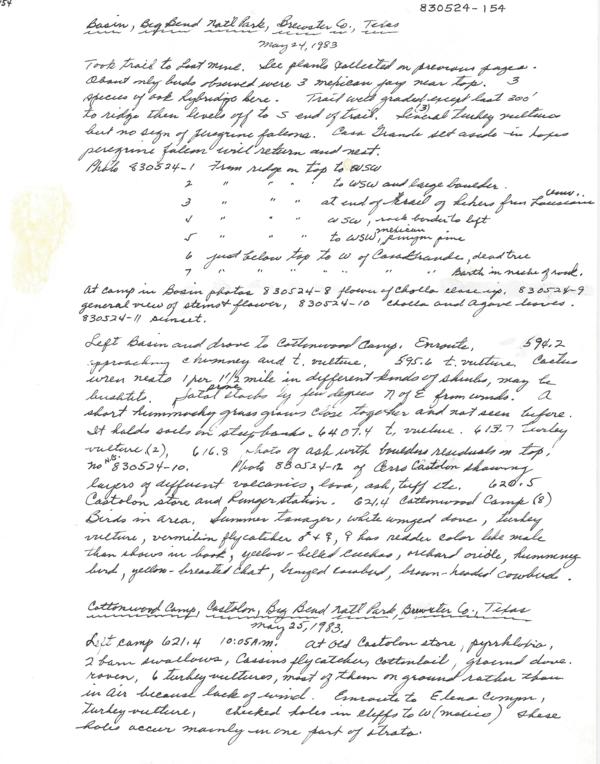 154
830524-154
Basin, Big Bend Nat'l Park, Brewster Co., Texas
May 24, 1983
Took trail to Lost Mine. See plants collected on previous pages.
About only birds observed were 3 mexican jay near top. 3
species of oak hybridize here. Trail well graded except last 200'
to ridge then levels off to S end of trail. Several (3) turkey vultures
but no sign of peregrine falcons. Casa Grande set aside in hopes
peregrine falcon will return and nest.
Photo 830524-1 From ridge on top to WSW
2 " " " to WSW and large boulder.
3 " " " at end of trail of hikers from Louisiana
4 " " " WSW, rock border to left
5 " " " to WSW, mexican pinyon pine
6 just below top to W of Casa Grande, dead tree
7 " " " " " " " Barth in niche of rock.
At camp in Basin photos 830524-8 flower of Cholla close-up, 830524-9
general view of stem & flower, 830524-10 cholla and agave leaves.
830524-11 sunset.
Left Basin and drove to Cottonwood Camp. Enroute, 594.2
approaching chimney and t. vulture. 595.6 t. vulture. Cactus
wren nests 1 per 1 1/2 mile in different kinds of shrubs, may be
bushtits. Sotol stocks by few degrees N of E from winds. A
short hummocky grass grows close together and not seen before.
It holds soils on steep banks. 6407.4 t. vulture. 613.7 turkey
vulture (2), 616.8 photo of ash with boulders residuals on top,
no NB. 830524-10. Photo 830524-12 of Cerro Castolon showing
layers of different volcanics, lava, ash, tuff etc. 620.5
Castolon store and Ranger station. 621.4 Cottonwood Camp (8)
Birds in area, Summer tanager, white winged dove, turkey
vulture, vermilion flycatcher ♂ + ♀, ♀ has redder color like male
than shows in book, yellow-billed cuckoo, orchard oriole, humming
bird, yellow-breasted chat, bronzed cowbird, brown-headed cowbird.
Cottonwood Camp, Castolon, Big Bend Nat'l Park, Brewster Co., Texas
May 25, 1983.
Left camp 621.4 10:05 A.M. At Old Castolon store, pyrrhloxia,
2 barn swallows, Cassins flycatcher, cottontail, ground dove.
raven, 6 turkey vultures, most of them on ground rather than
in air because lack of wind. Enroute to Elena Canyon,
turkey vulture, checked holes in cliffs to W (mexico) these
holes occur mainly in one part of strata.